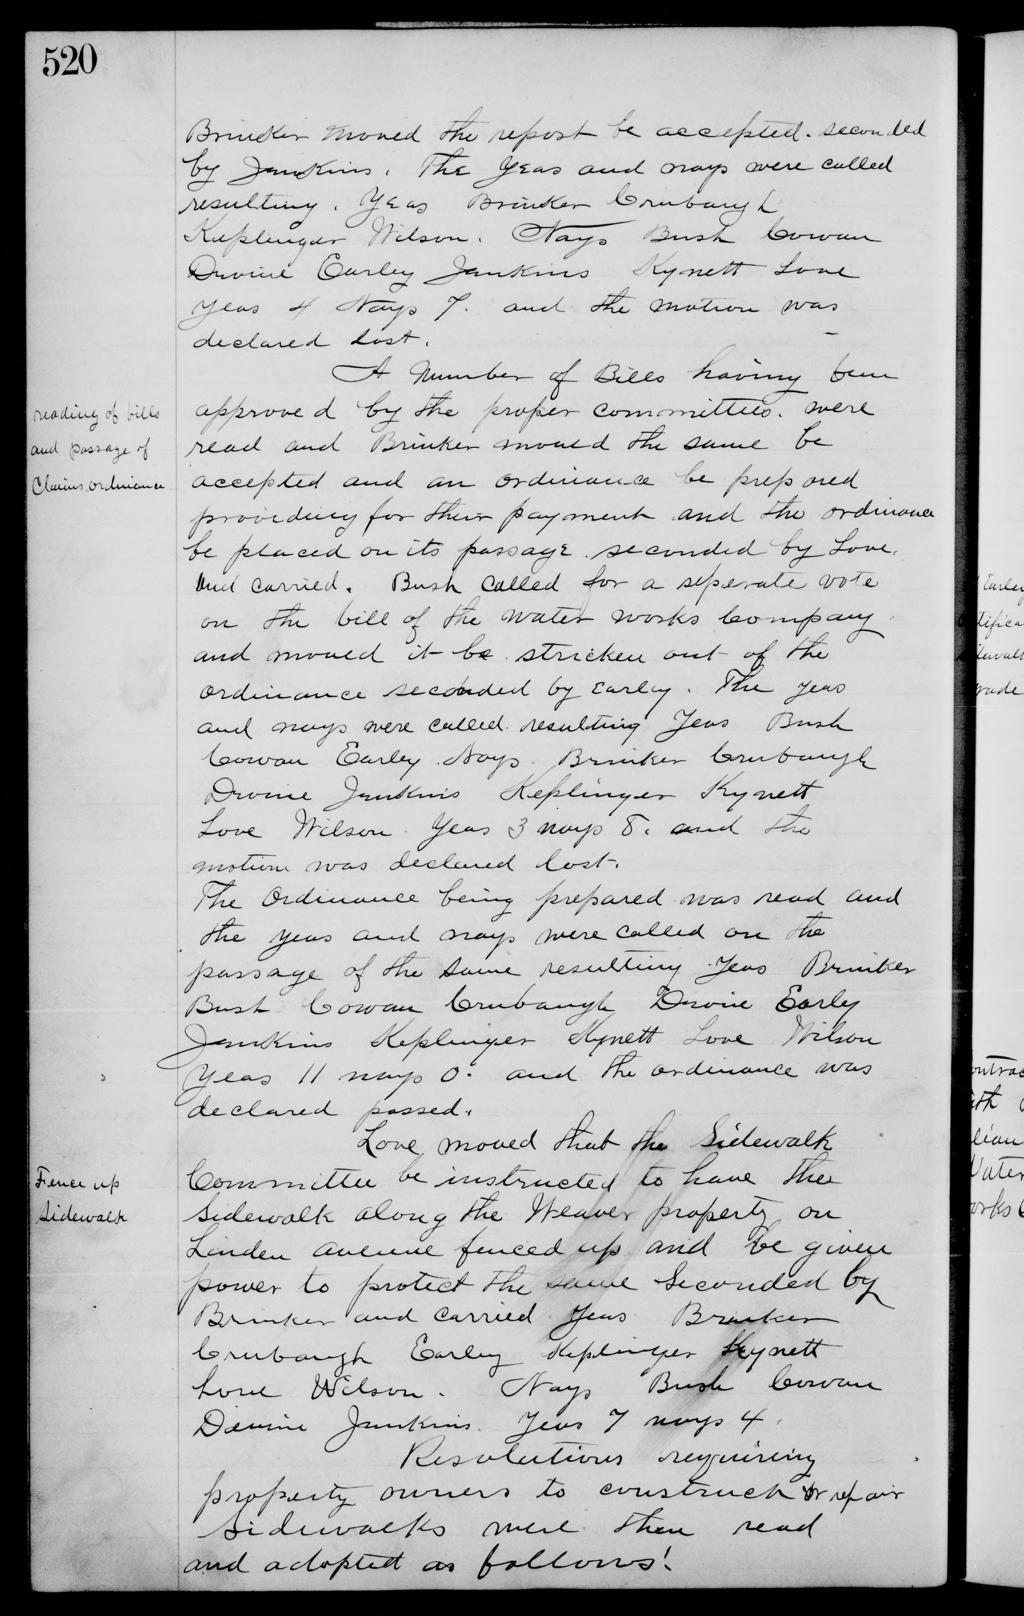 520
Brinker moved the report be accepted. seconded
by Junkins. The Yeas and nays were called
resulting. Yeas Brinker Crubaugh
Keplinger Wilson. Nays Bush Cowan
Devine Earley Junkins Kynett Love
Yeas 4 Nays 7. and the motion was
declared lost.
A Number of Bills having been
reading of bills
and passage of
Claims ordinance
approved by the proper committees. were
read and Brinker moved the same be
accepted and an ordinance be prepared
providing for their payment and the ordinance
be placed on its passage. seconded by Love.
and carried. Bush called for a seperate vote
on the bill of the water works Company
and moved it be stricken out of the
ordinance seconded by Earley. The yeas
and nays were called resulting Yeas Bush
Cowan Earley. Nays. Brinker Crubaugh
Devine Junkins Keplinger Kynett
Love Wilson Yeas 3 nays 8. and the
motion was declared lost.
The Ordinance being prepared was read and
the yeas and nays were called on the
passage of the same resulting Yeas Brinker
Bush Cowan Crubaugh Devine Early
Junkins Keplinger Kynett Love Wilson
Yeas 11 nays 0. and the ordinance was
declared passed.
Love moved that the Sidewalk
Fence up
Sidewalk
Committee be instructed to have the
sidewalk along the Weaver property on
Linden avenue fenced up and be given
power to protect the same Seconded by
Brinker and carried Yeas Brinker
Crubaugh Earley Keplinger Kynett
Love Wilson. Nays Bush Cowan
Devine Junkins. Yeas 7 nays 4.
Resolutions requiring
property owners to construct or repair
Sidewalks were then read
and adopted as follows!